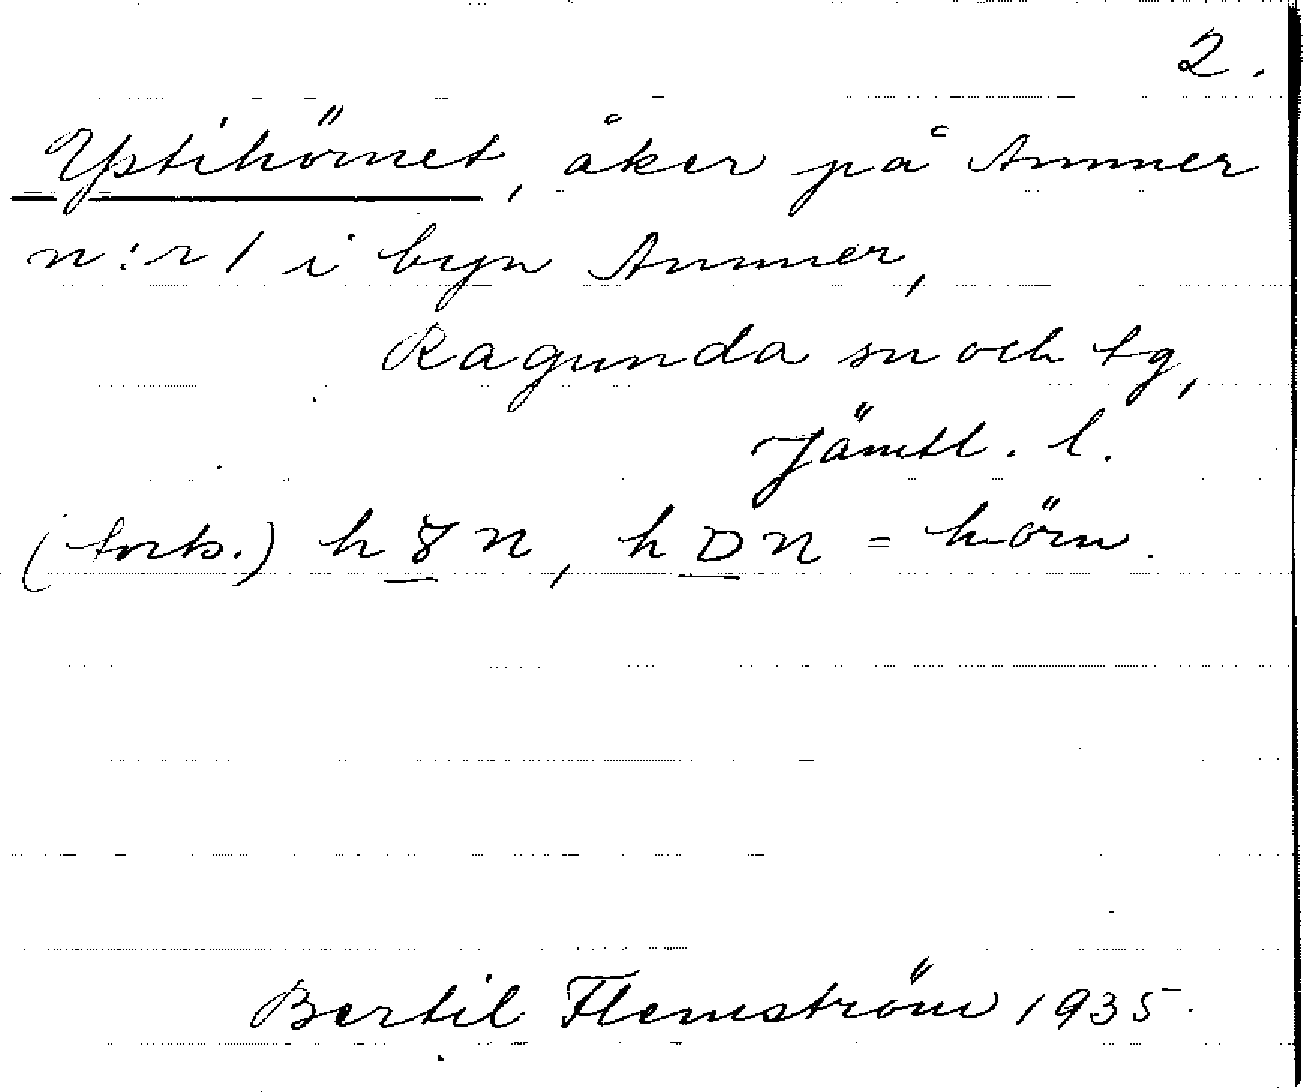 2.
Ystihörnet, åker på Ammer
n:r 1 i byn Ammer,
Ragunda sn och tg,
Jämtl. l.
(forts.) h n, h n = hörn.
Bertil Flemström 1935.